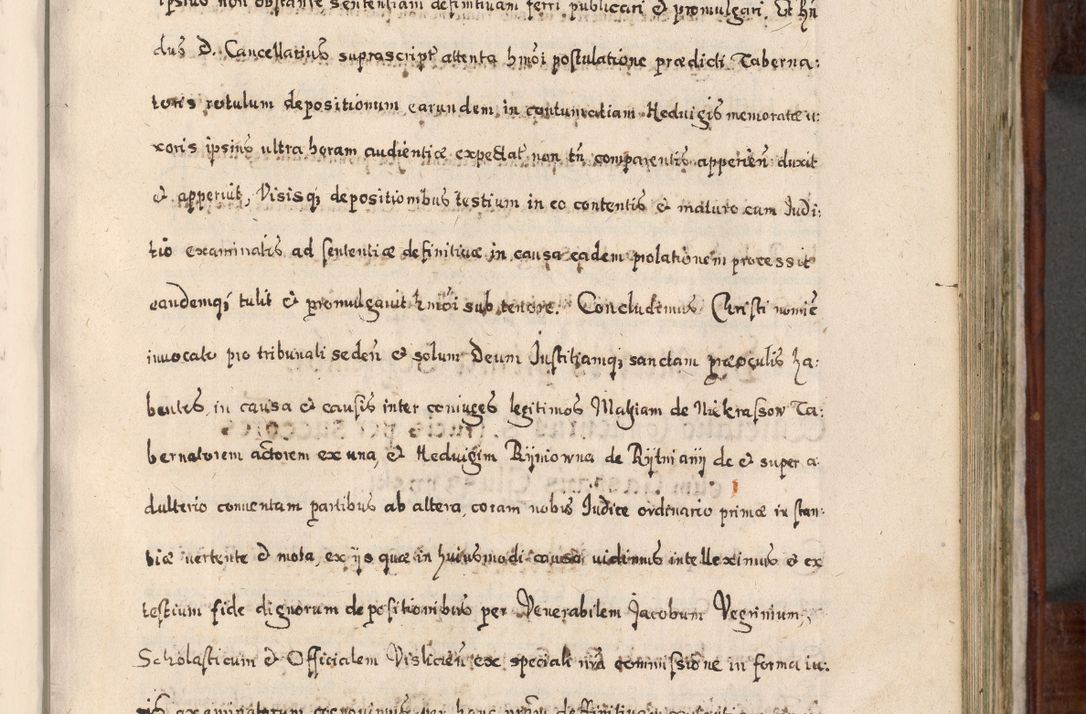 ipsius non obstante, sententiam definitivam ferri publicari et promulgari. Et hñ
dus D. Cancellarius suprascript attenta hmõi postulatione prædicti Taberna:
toris rotulum depositionum earundem, in contumatiam Heduigis memoratæ u:
xoris ipsius ultra horam audientiæ expectat non tñ comparentis apperien duxit
et apperuit, Visisq; depositionibus testium in eo contentis et maturo cum Judi:
tio examinatis ad sententiæ definitivæ in causa eadem prolationem processit
eandemq; tulit et promulgauit hmõi sub tenore. Concludimus Christi nomie
inuocato pro tribunali seden et solum Deum Justitiamq; sanctam præoculis ha:
bentes, in causa et causis inter coniuges legitimos Mathiam de Niekrassow Ta:
bernatorem actorem ex una, et Heduigim Rijniowna de Rijtnianij de et super a
dulterio conuentam partibus ab altera, coram nobis Judice ordinario primæ in stan:
tiæ uertente et mota, ex ijs quæ in huiusmodi causa uidimus intelleximus et ex
testium fide dignorum depositionibus per Venerabilem Jacobum Veginium,
Scholasticum et Officialem Visliciẽn ex speciali nrã commissione in forma iu:
ris examinatorum cognouimus per hanc nrãm deffinitiuam